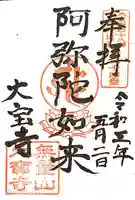 奉拝
令和五年
五月二日
阿弥陀如来
大宝寺